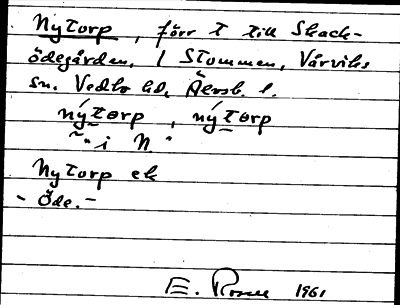 Nytorp, förr t till Skack-
ödegården, / Stommen, Vårviks
sn. Vedbo hd, Älvsb. l.
nýtorp, nýtorp
~"i N"
Nytorp ek
- Öde. -
E. 1961